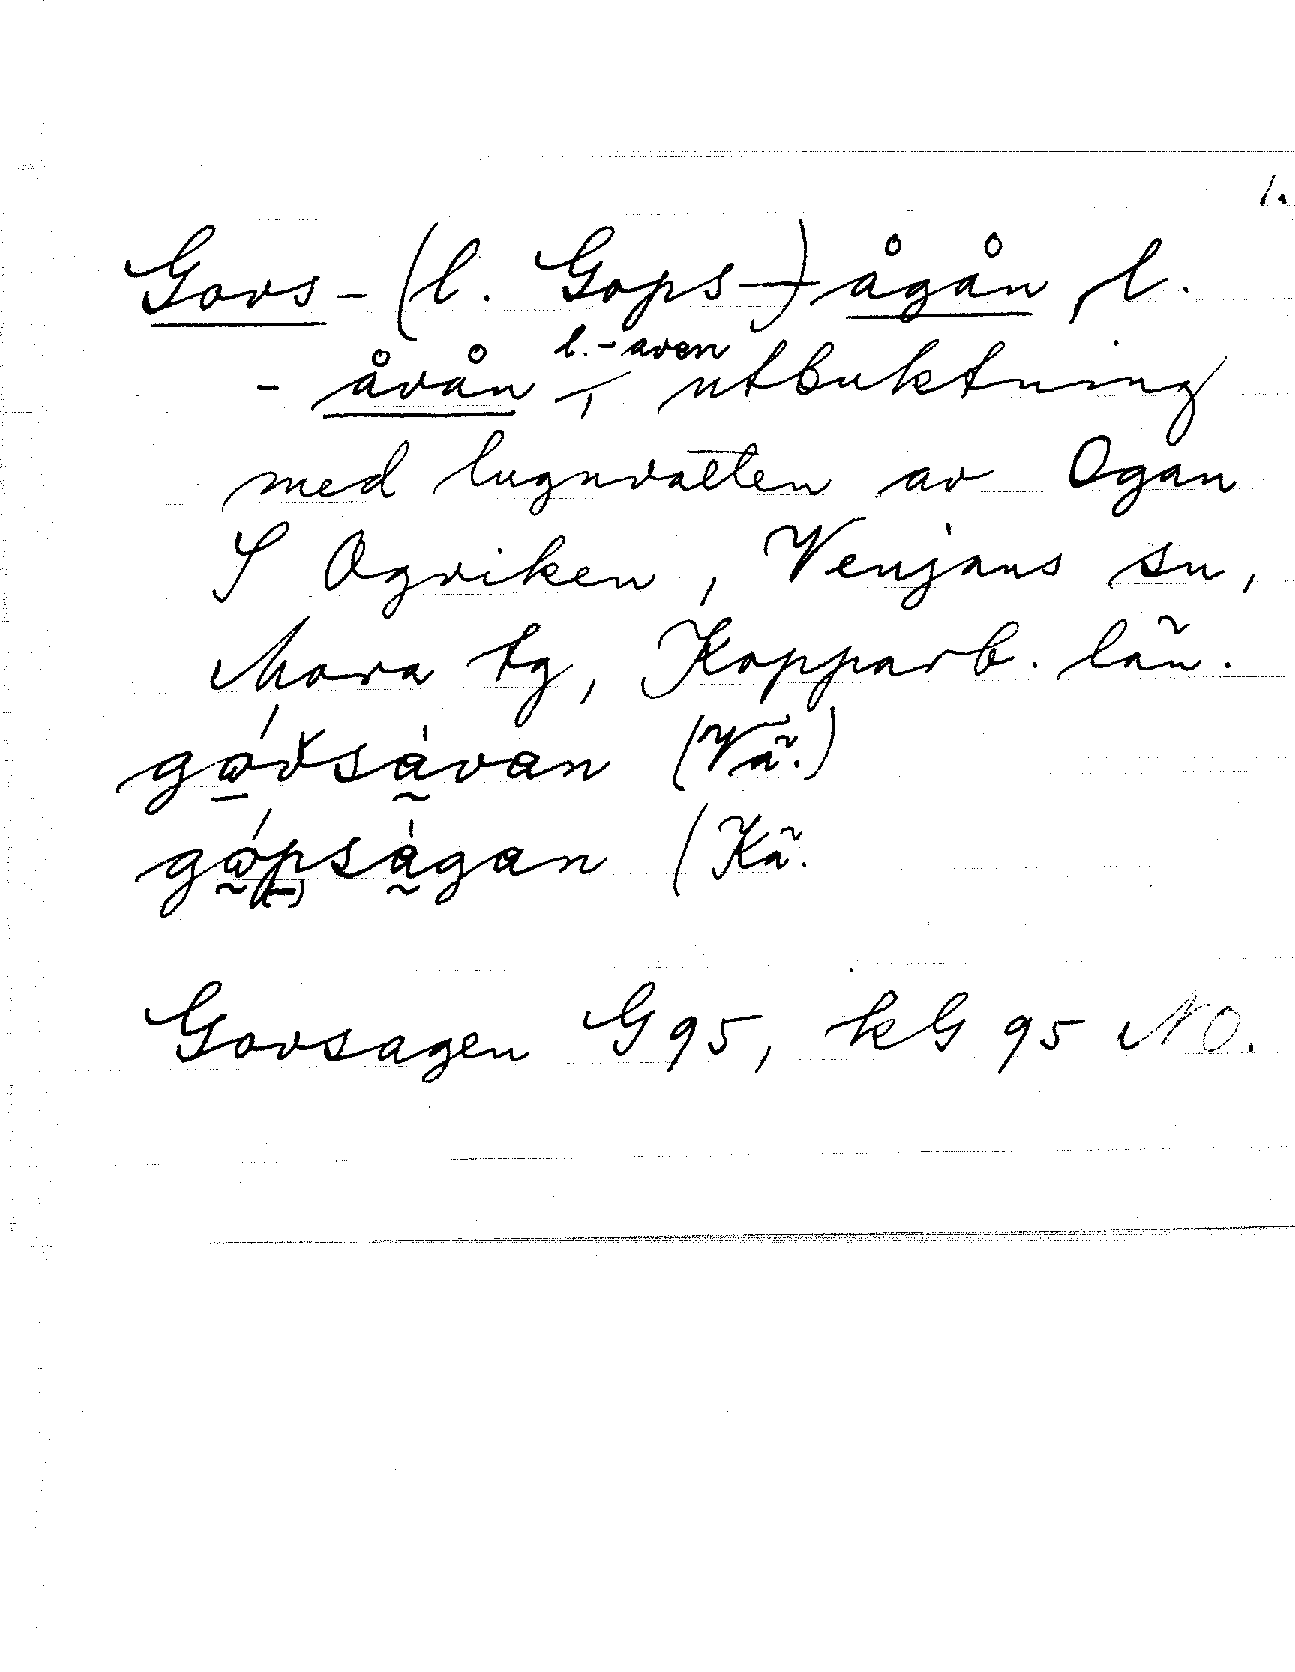 1.
Govs- (l. Gops-) ågån, l.
l. -aven
- åvån, utbuktning
med lugnvatten av Ogan
S Ogviken, Venjans sn,
Mora tg, Kopparb. län.
(Vä.)
(Kä.
Govsagen G 95, kG 95 NO.